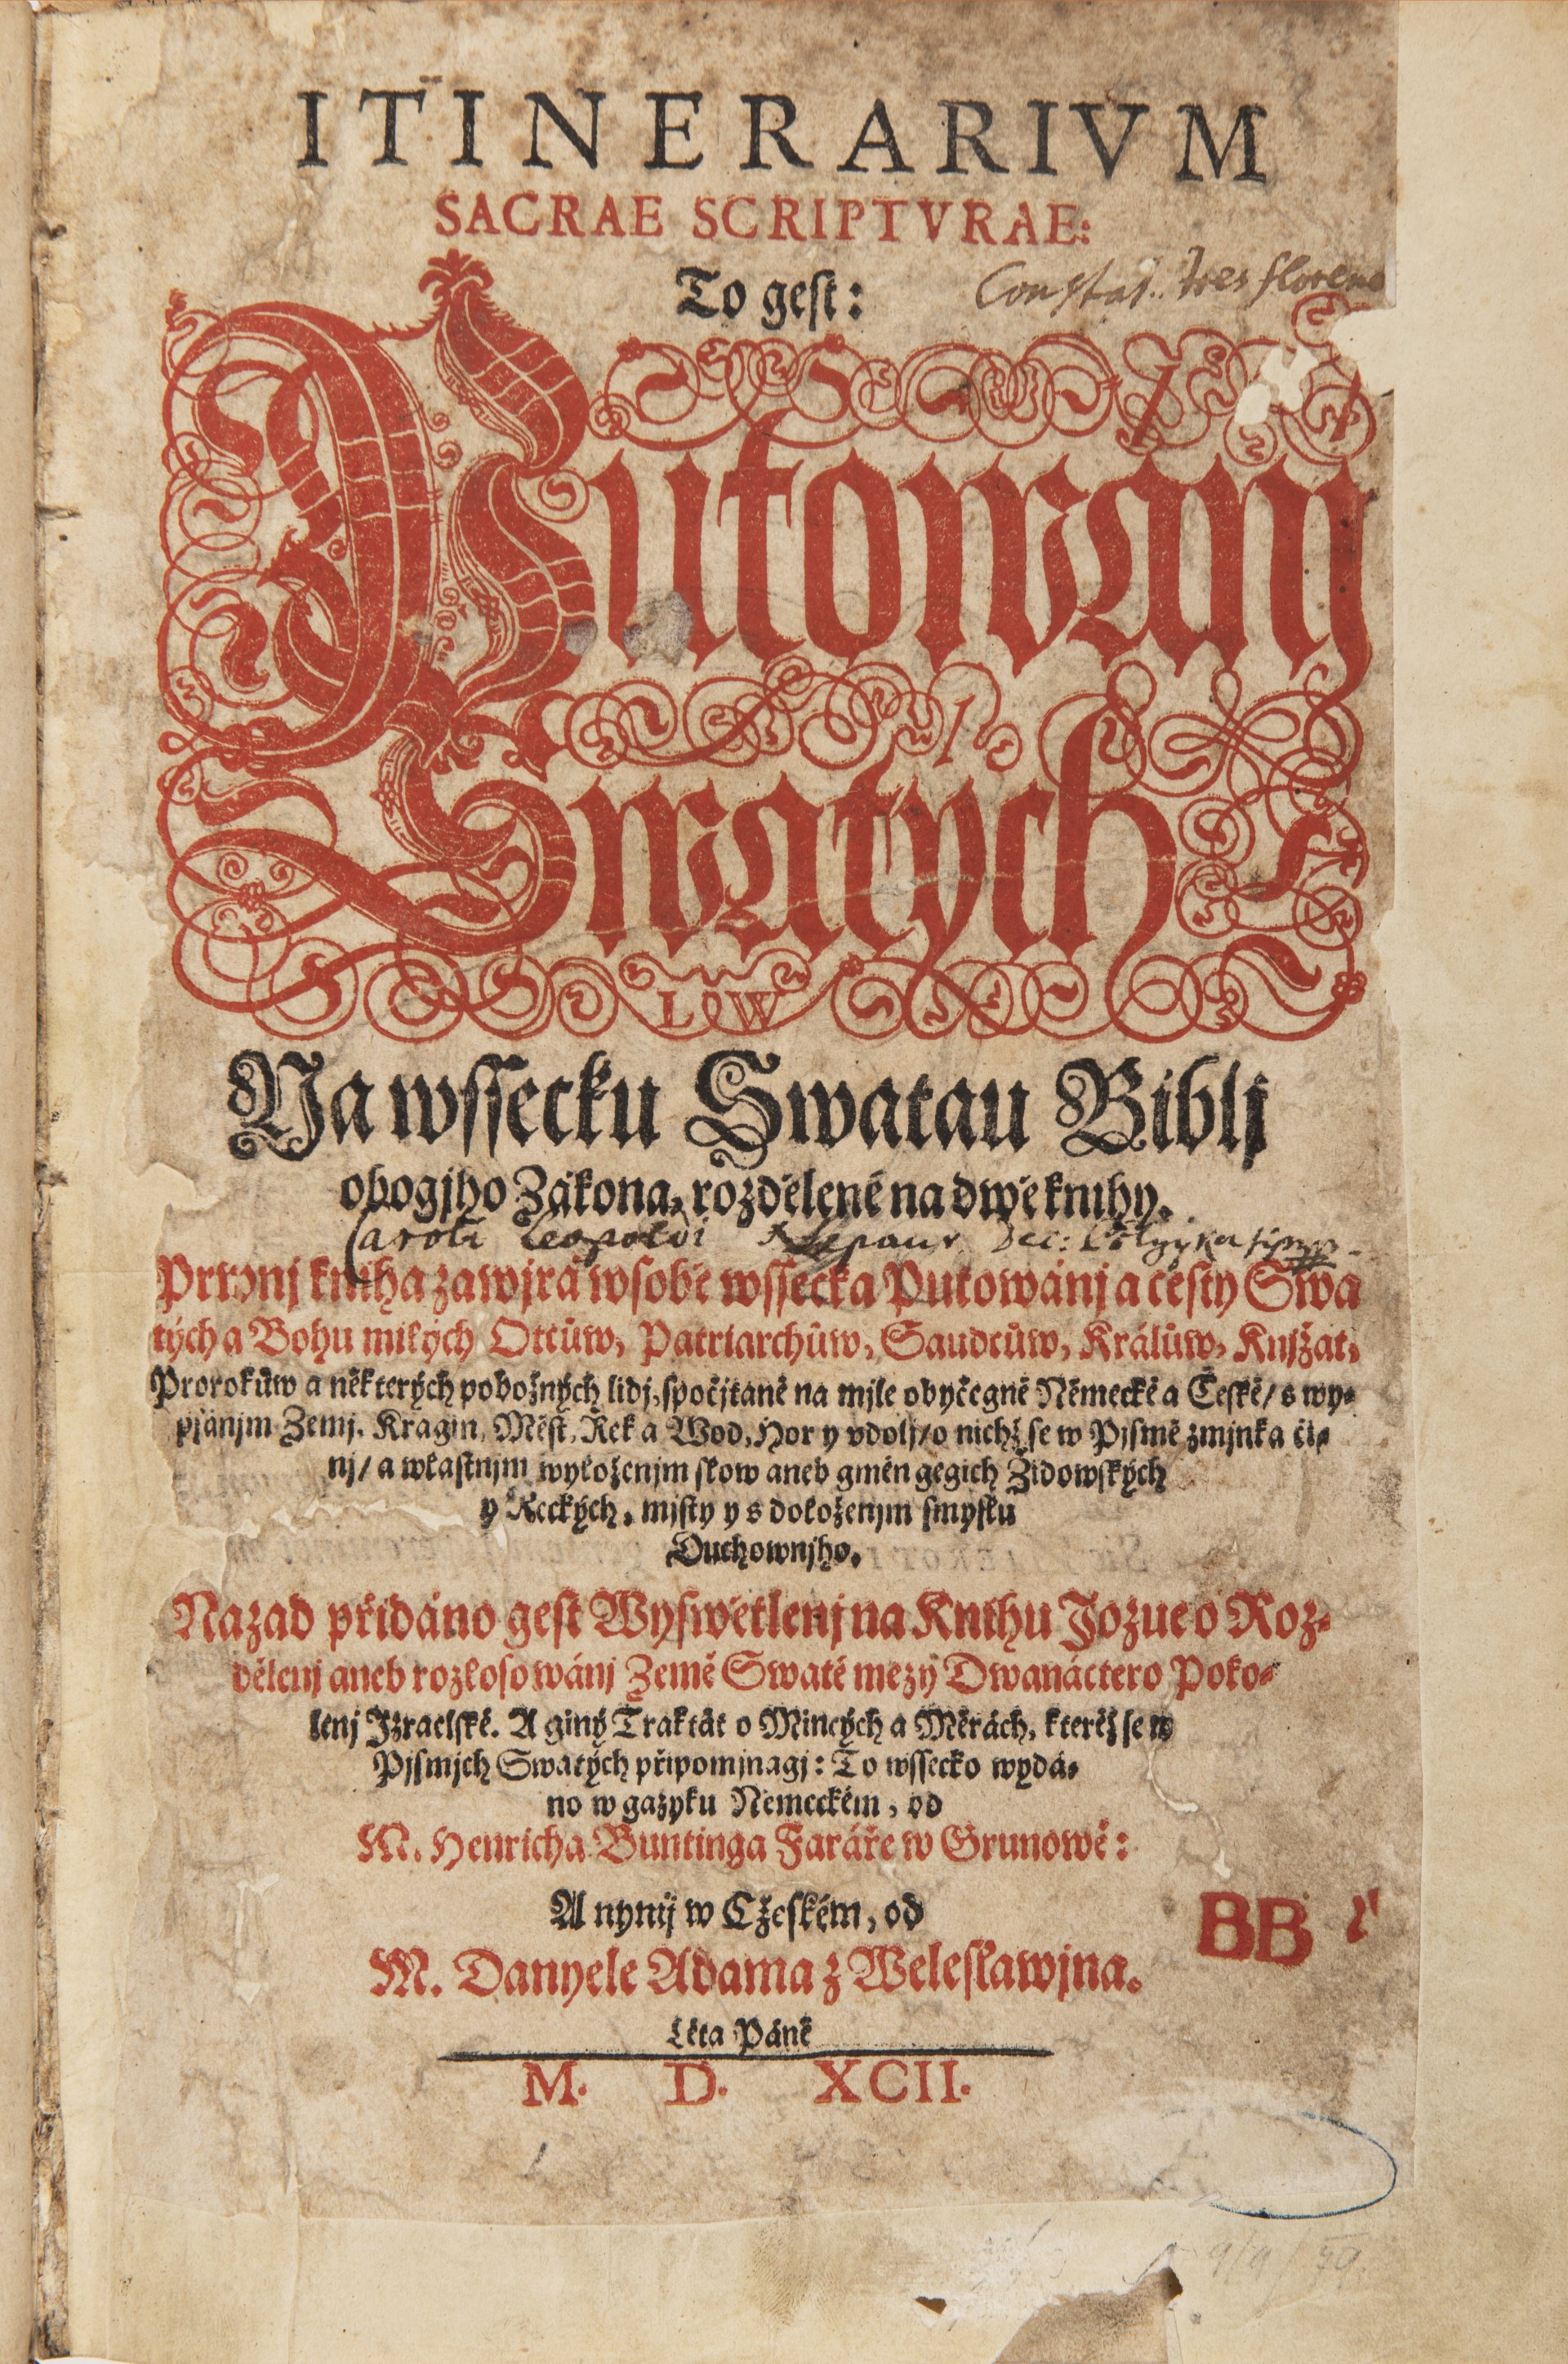 ITINERARIVM
SACRAE SCRIPTVRAE:
To geſt:
Conſtat: tres floren
Putowánj
Swatých
L W
Na wſſecku Swatau Biblj
obogjho Zákona, rozdělené na dwě knihy.
Caroli Leopoldi
Prwnj kniha zawjrá w ſobě wſſecka Putowánj a ceſty Swa
tých a Bohu milých Otcůw, Patriarchůw, Saudcůw, Králůw, Knjžat,
Prorokůw a některých pobožných lidj, ſpočjtané na mjle obyčegné Německé a České/ s wy-
pſánjm Zemj, Kragin, Měſt, Řek a Wod, Hor y vdolj/ o nichž ſe w Pjſmě zmjnka či-
nj/ a wlaſtnjm wyložením ſlow aneb gmén gegich Židowſkých
y Řeckých, mjſty y s doloženjm ſmyſlu
Duchownjho.
Nazad přidáno geſt Wyſwětlenj na Knihu Jozue o Roz-
dělenj aneb rozloſowánj Země Swaté mezy Dwanáctero Poko-
lenj Izraelſké. A giný Traktát o Mincých a Měrách, kteréž ſe w
Pjſmjch Swatých připomjnagj: To wſſecko wydá-
no w gazyku Německém, od
M. Henricha Buntinga Faráře w Grunowě:
A nynij w Cžeſkém, od
M. Danyele Adama z Weleſlawjna.
Léta Páně
M. D. XCII.
BB